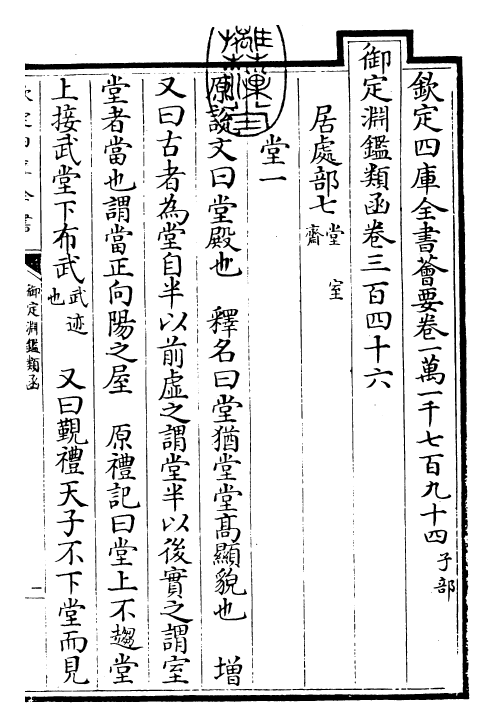 欽定四庫全書薈要卷一萬一千七百九十四子部
御定淵鑑類函卷三百四十六
居處部七 堂 室 齋
堂一
原說文曰堂殿也 釋名曰堂猶堂堂髙顯貌也 增
又曰古者為堂自半以前虛之謂堂半以後實之謂室
堂者當也謂當正向陽之屋 原禮記曰堂上不趨堂
上接武堂下布武武迹也 又曰覲禮天子不下堂而見
御定淵鑑類函
一